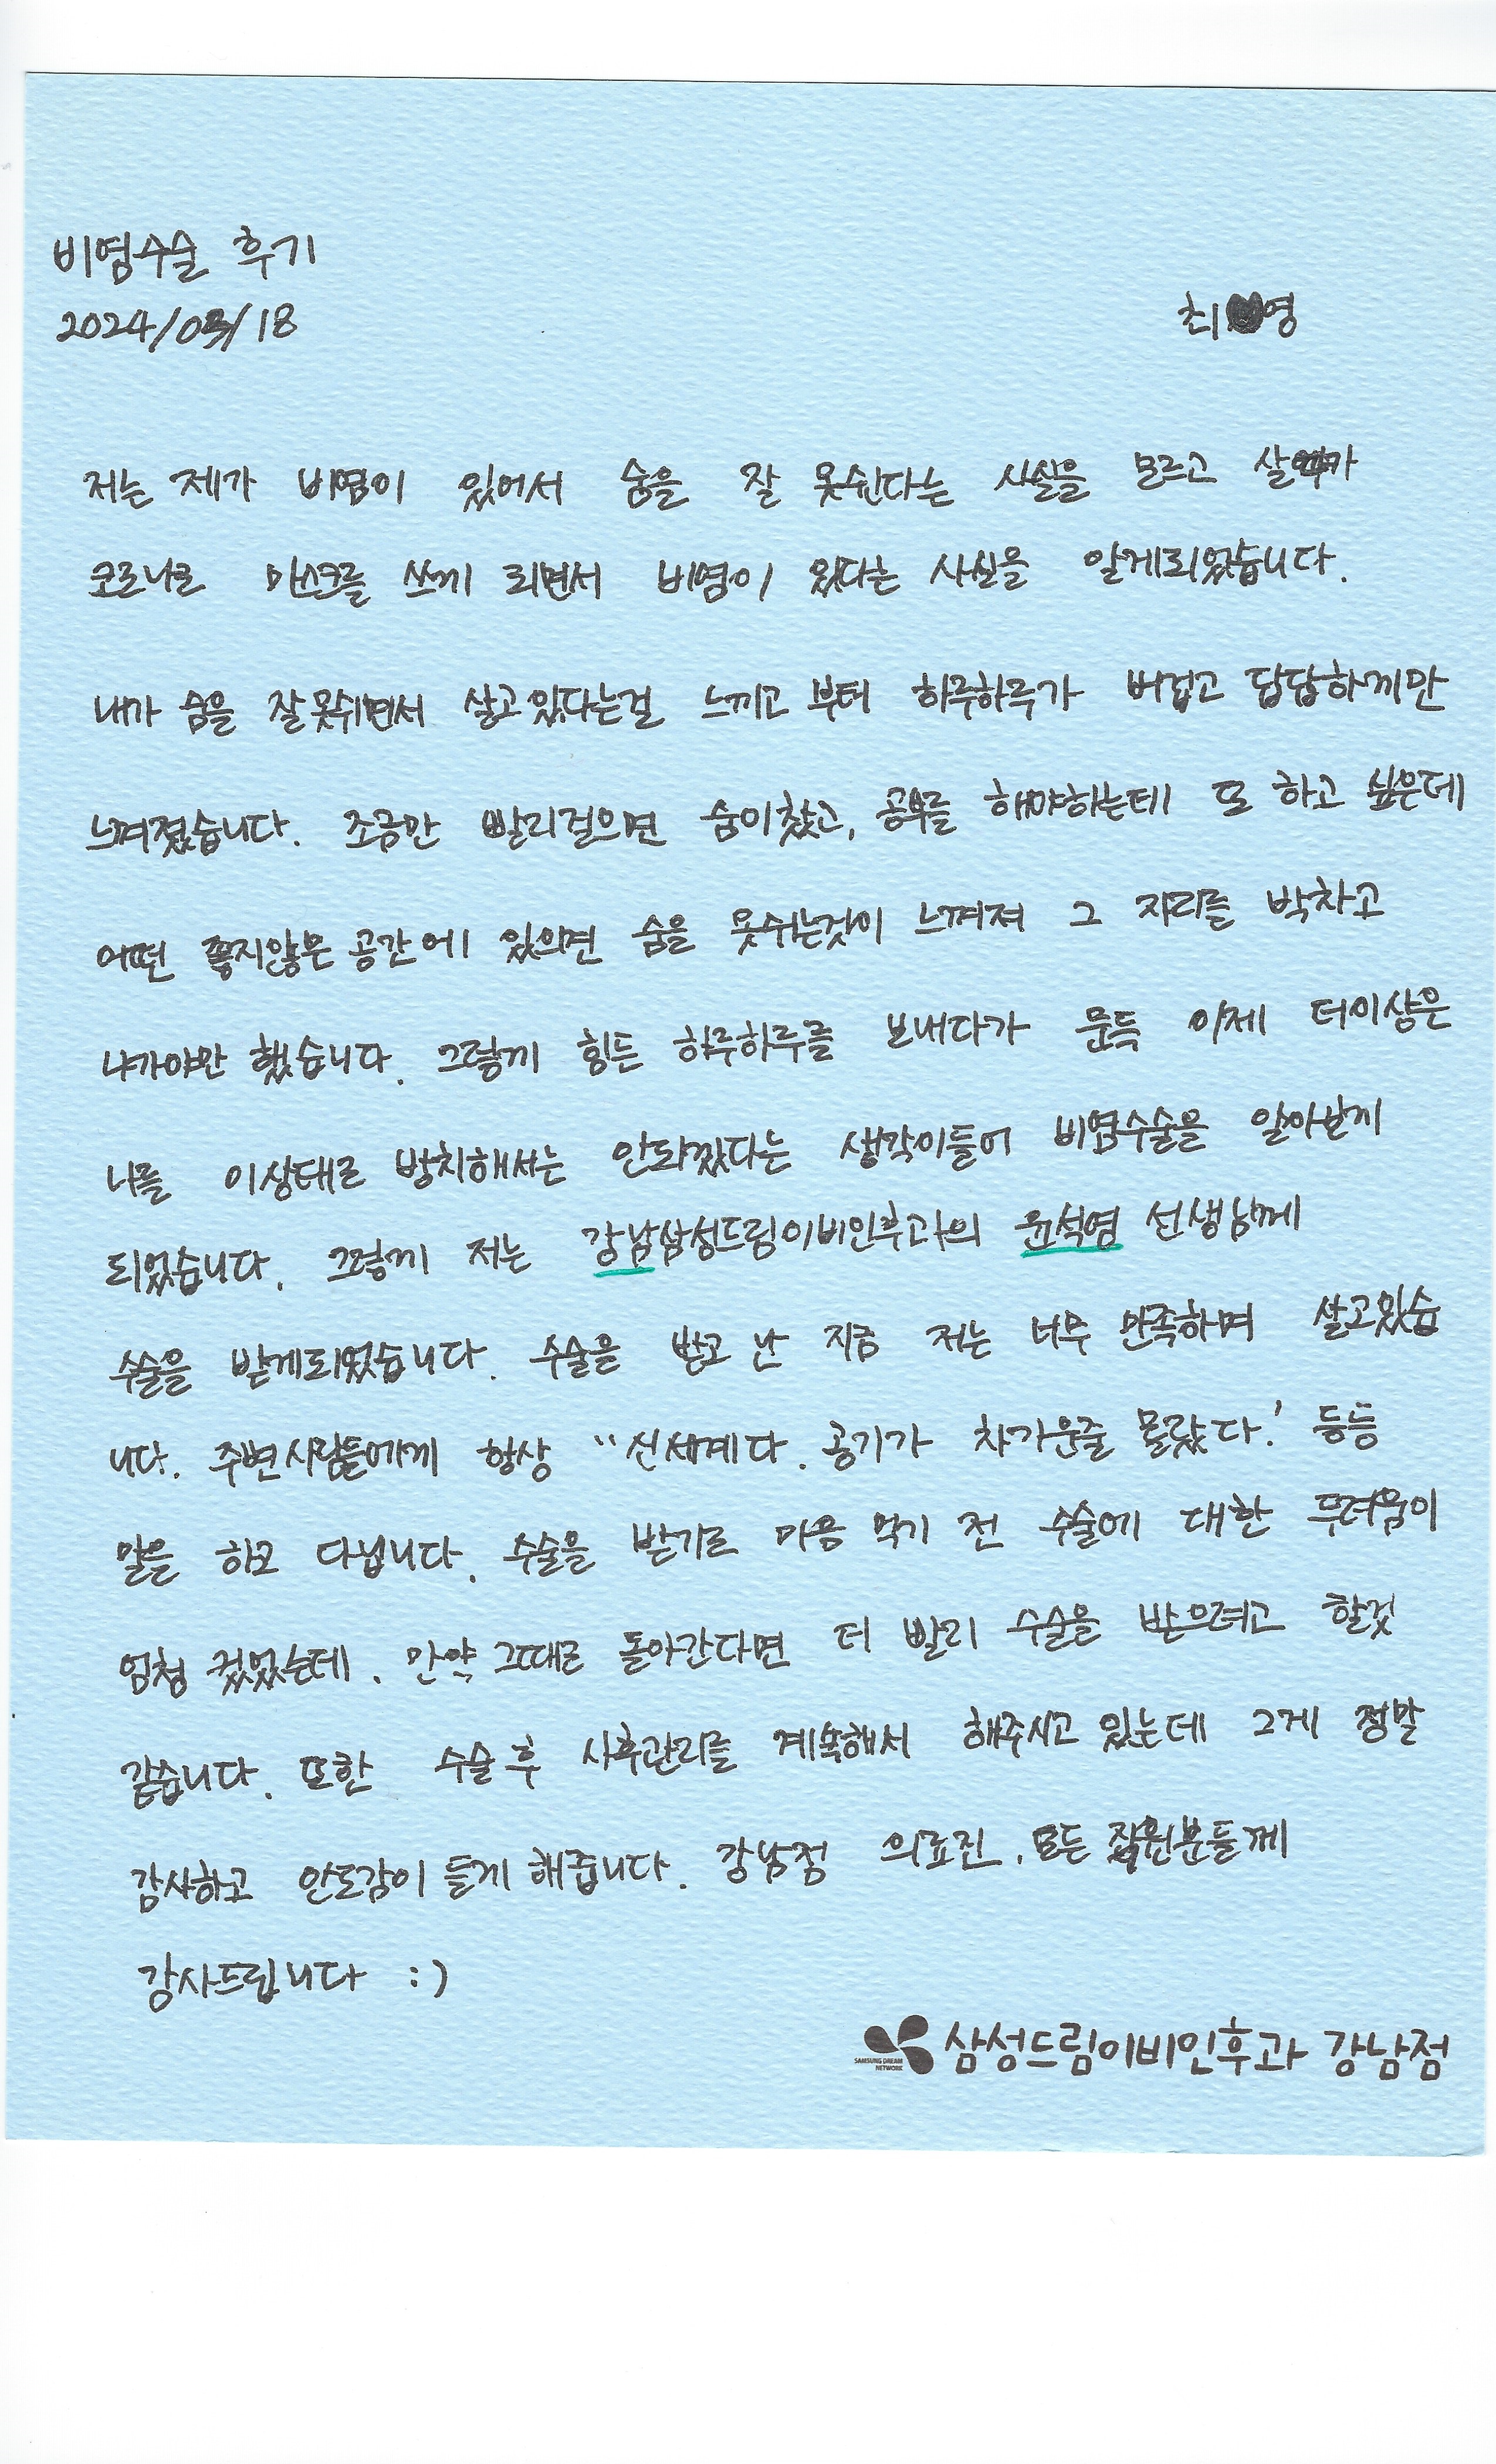 비염수술 후기
2024/03/18
최 영
저는 제가 비염이 있어서 숨을 잘 못쉰다는 사실을 모르고 살다가
코로나로 마스크를 쓰게 되면서 비염이 있다는 사실을 알게되었습니다.
내가 숨을 잘못쉬면서 살고있다는걸 느끼고 부터 하루하루가 버겁고 답답하게만
느껴졌습니다. 조금만 빨리걸으면 숨이찼고, 공부를 해야하는데 또 하고 싶은데
어떤 좋지않은 공간에 있으면 숨을 못쉬는것이 느껴져 그 자리를 박차고
나가야만 했습니다. 그렇게 힘든 하루하루를 보내다가 문득 이제 더이상은
나를 이상태로 방치해서는 안되겠다는 생각이들어 비염수술을 알아보게
되었습니다. 그렇게 저는 강남삼성드림이비인후과의 윤석영 선생님께
수술을 받게되었습니다. 수술을 받고 난 지금 저는 너무 만족하며 살고있습
니다. 주변사람들에게 항상 "신세계다. 공기가 차가운줄 몰랐다.' 등등
말을 하고 다닙니다. 수술을 받기로 마음 먹기 전 수술에 대한 두려움이
엄청 컸었는데, 만약 그때로 돌아간다면 더 빨리 수술을 받으려고 할것
같습니다. 또한 수술 후 사후관리를 계속해서 해주시고 있는데 그게 정말
감사하고 안도감이 들게 해줍니다. 강남점 의료진, 모든 직원분들께
감사드립니다 :)
SAMSUNG DREAM
NETWORK
삼성드림이비인후과 강남점